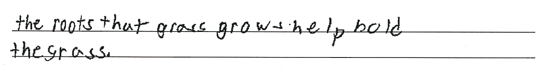 the roots that grass grows help hold
the grass.